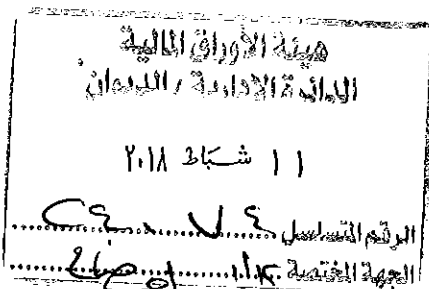 هيئة الأوراق المالية
الدائرة الإدارية / الديوان
١١ شباط ٢٠١٨
الرقم المتسلسل
الجهة المختصة